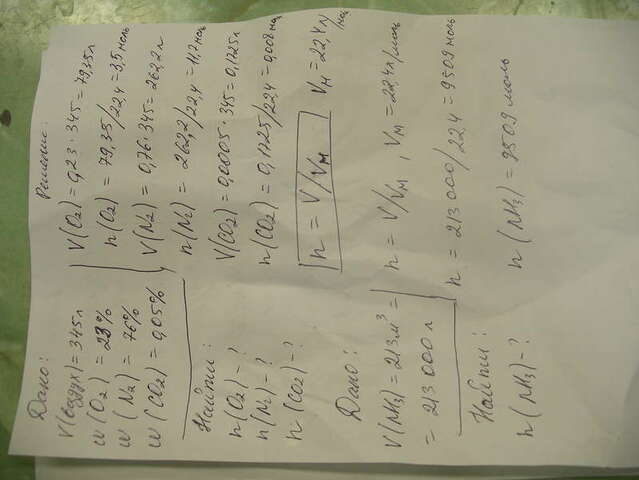 Дано:
V(воздух) = 345 л
w(O₂) = 23%
w(N₂) = 76%
w(CO₂) = 0,05%
Найти:
n(O₂) - ?
n(N₂) - ?
n(CO₂) - ?
Решение:
V(O₂) = 0,23 · 345 = 79,35 л
n(O₂) = 79,35/22,4 = 3,5 моль
V(N₂) = 0,76 · 345 = 262,2 л
n(N₂) = 262,2/22,4 = 11,7 моль
V(CO₂) = 0,0005 · 345 = 0,1725 л
n(CO₂) = 0,1725/22,4 = 0,008 моль
n = V/Vм Vм = 22,4 л/моль
Дано:
V(NH₃) = 213 м³ =
= 213 000 л
Найти:
n(NH₃) - ?
n = V/Vм , Vм = 22,4 л/моль
n = 213 000/22,4 = 9509 моль
n(NH₃) = 9509 моль